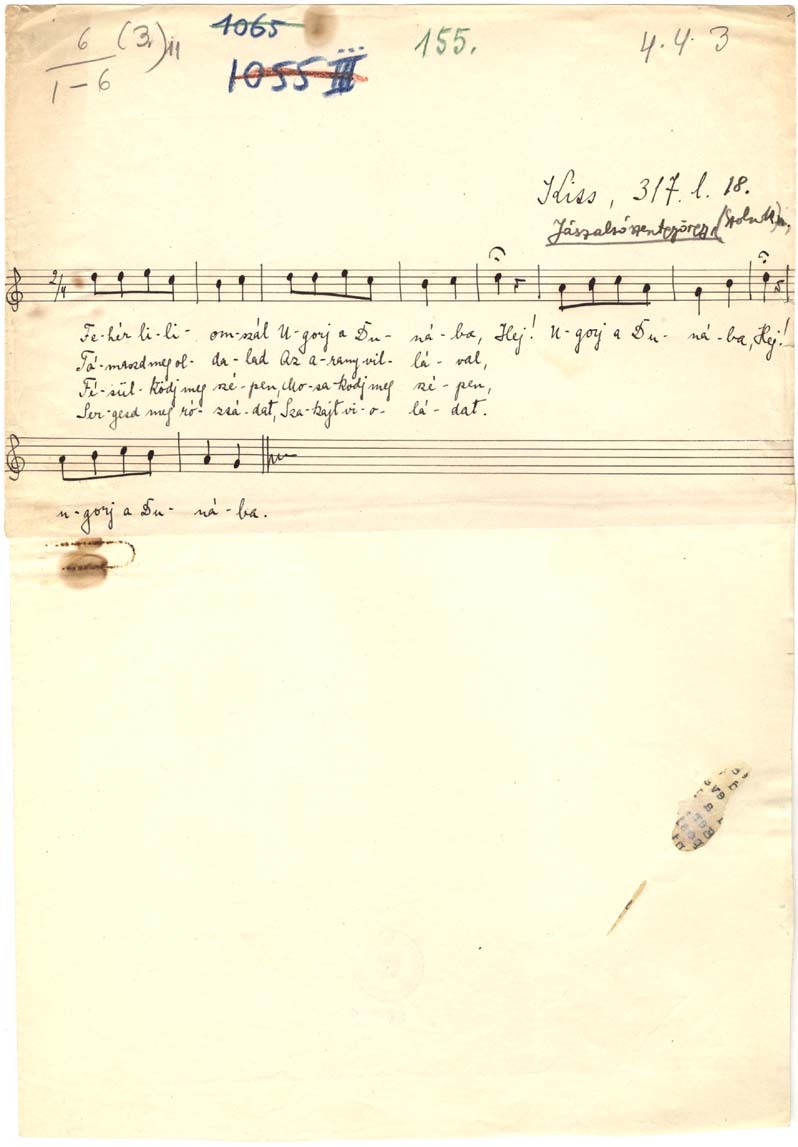 6 (3.) ii
1-6
1065
1055 III
155.
4. 4. 3
Kiss, 317. l. 18.
Jászalsószentgyörgy (Szolnok)
2/4
Fe-hér li-li- om-szál U-gorj a Du- ná-ba, Hej! U-gorj a Du- ná-ba, Hej!
Tá-maszd meg ol- da-lad Az a-rany vil- lá-val,
Fé-sül-ködj meg szé-pen, Mo-sa-kodj meg szé-pen,
Ser-gesd meg ró- zsá-dat, Sza-kajt vi-o- lá-dat.
u-gorj a Du- ná-ba.